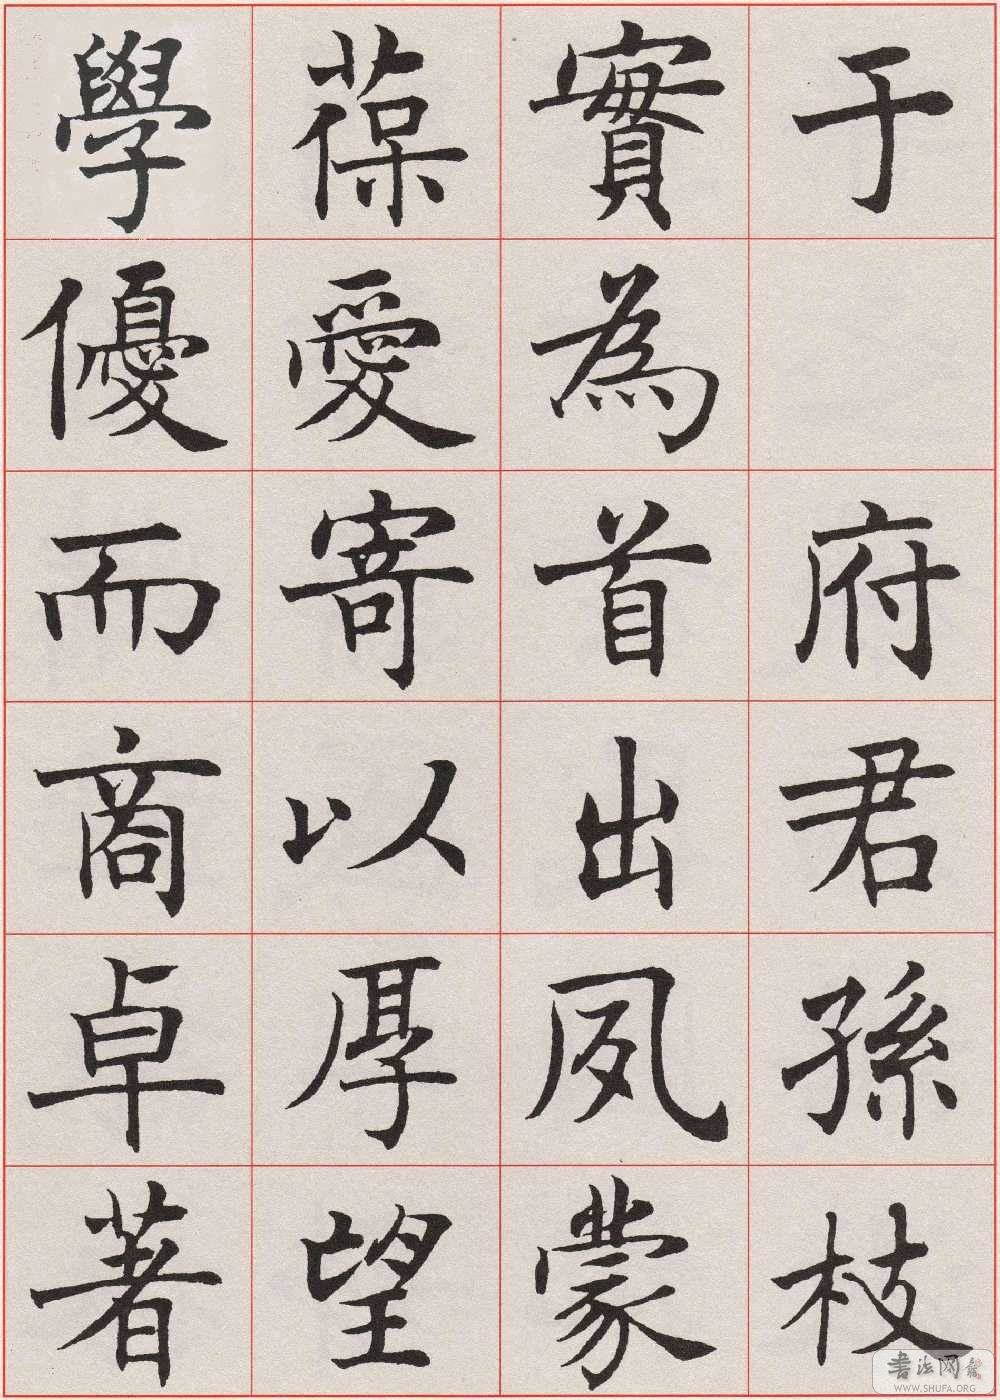 于 府君孫枝
實為首出夙蒙
葆愛寄以厚望
學優而商卓著
書法网
WWW.SHUFA.ORG